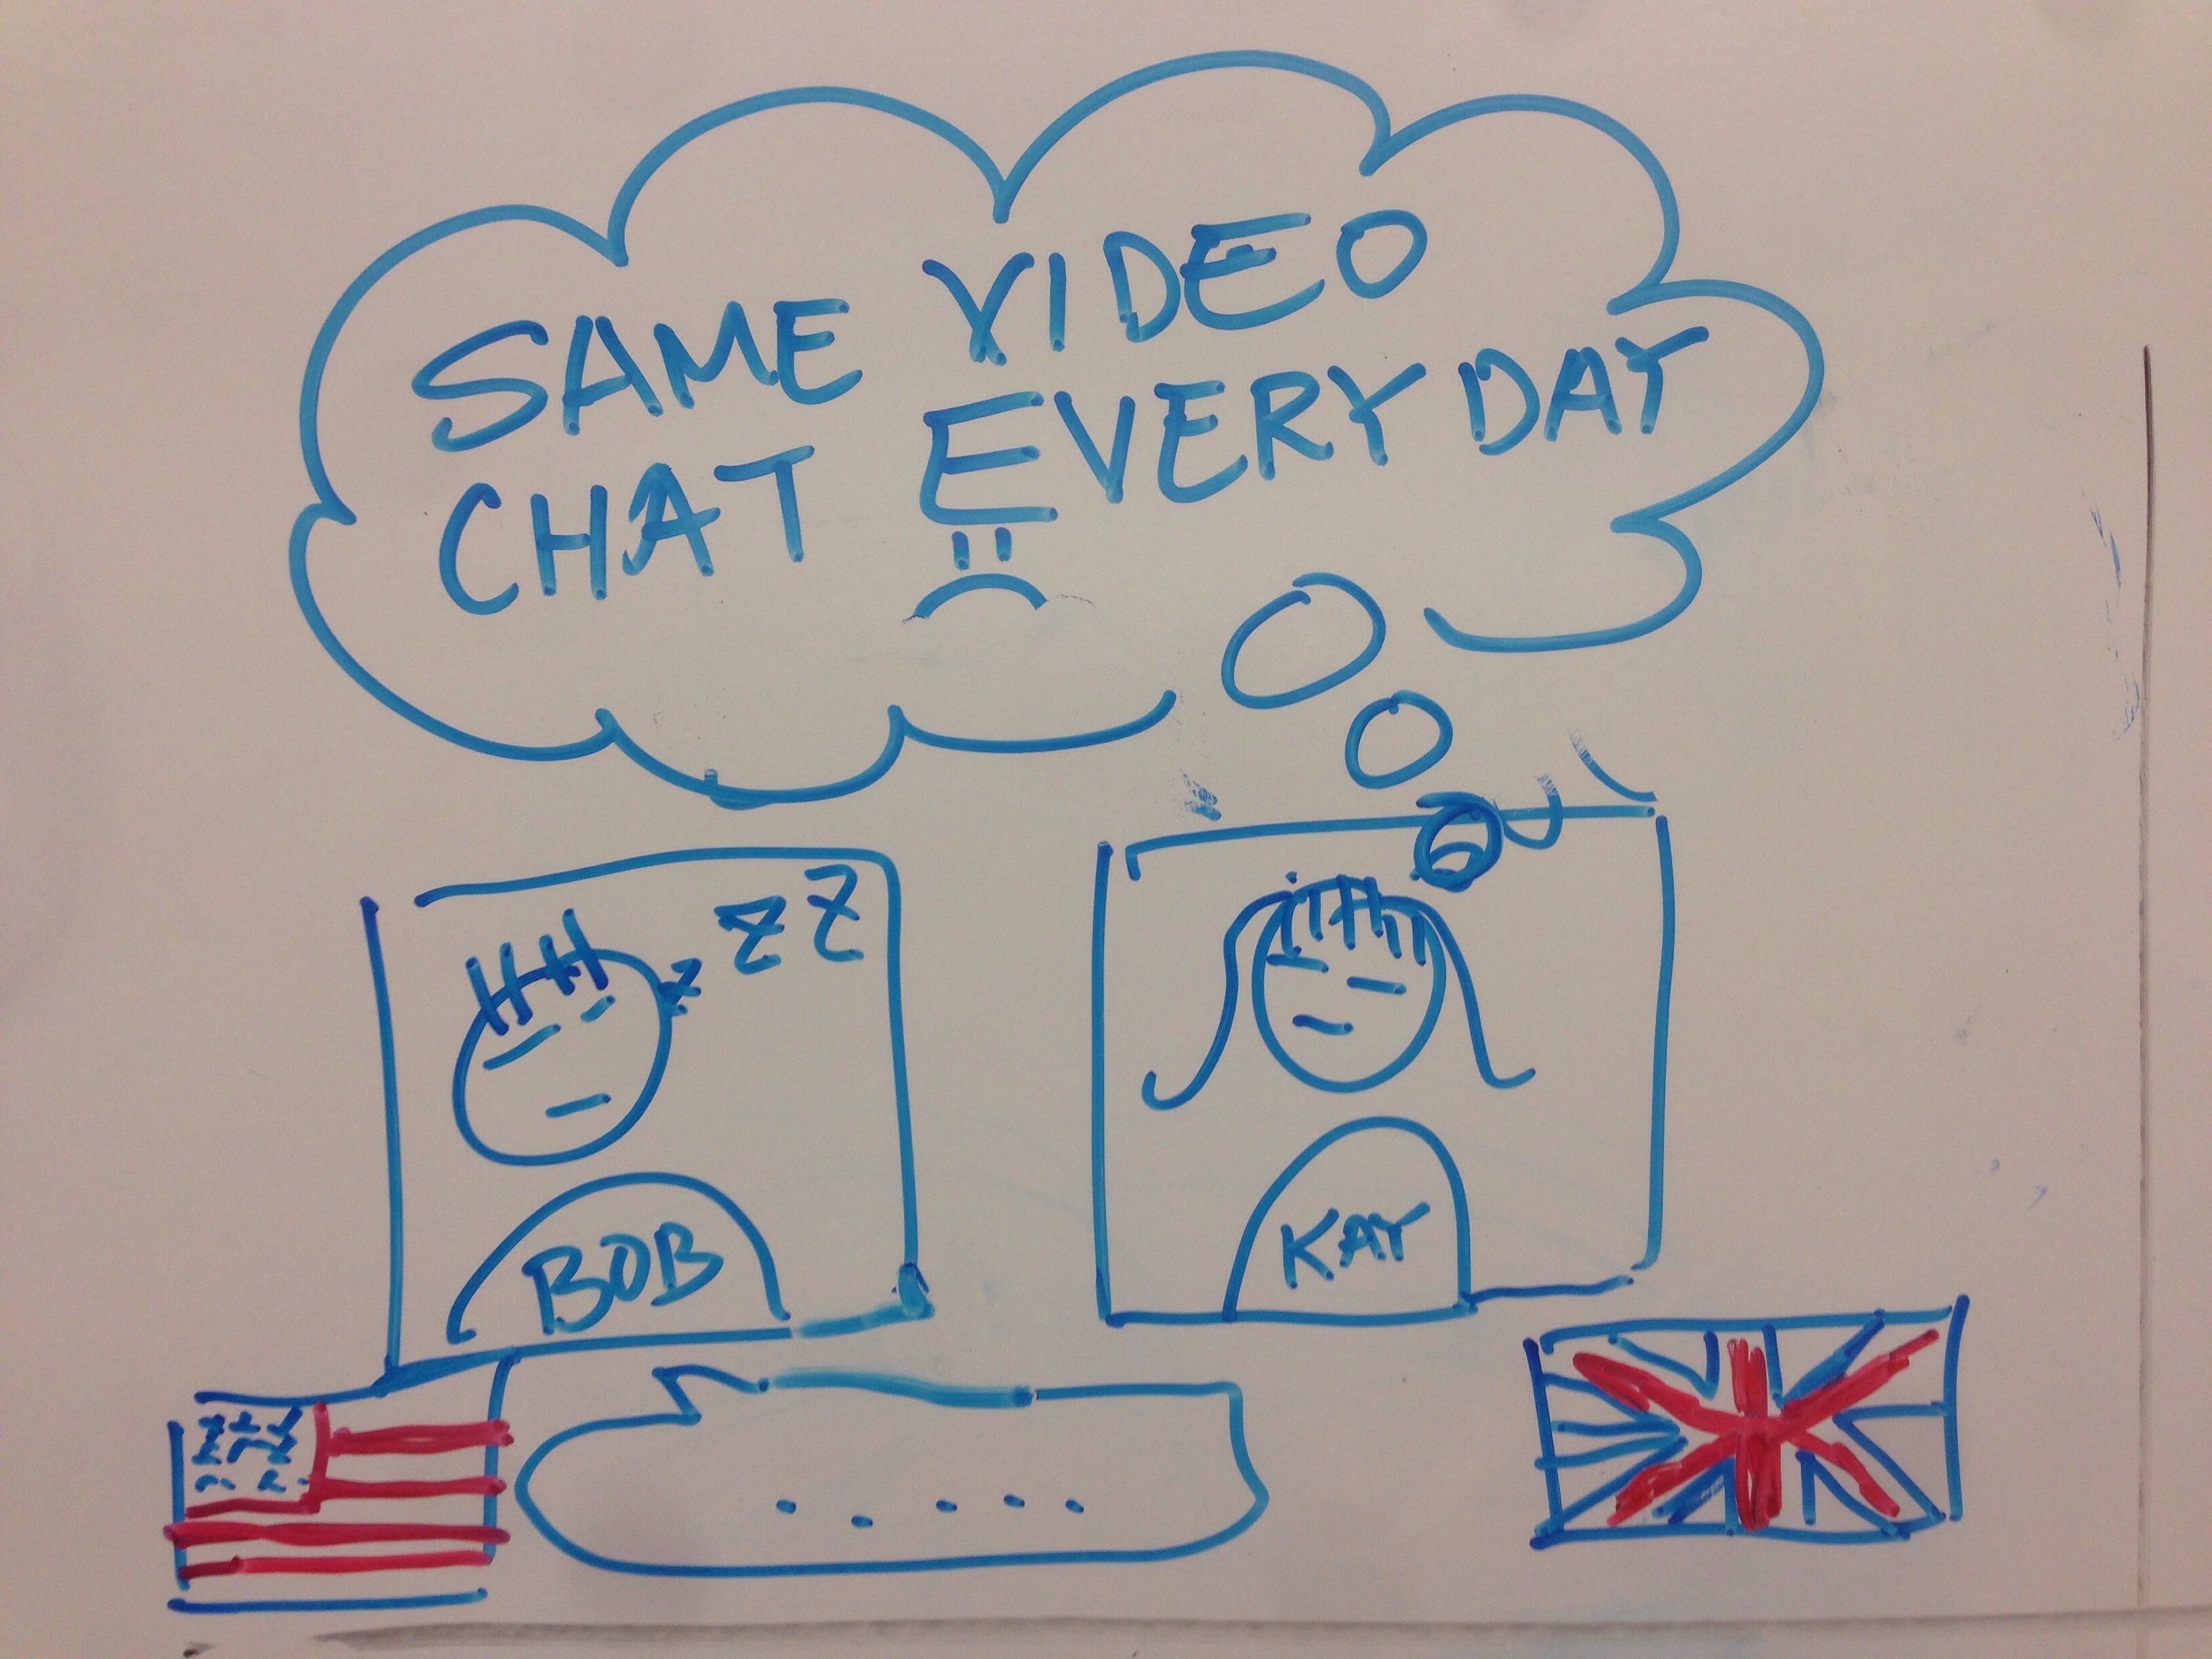 SAME VIDEO
CHAT EVERYDAY
z z z
BOB
KAY
......